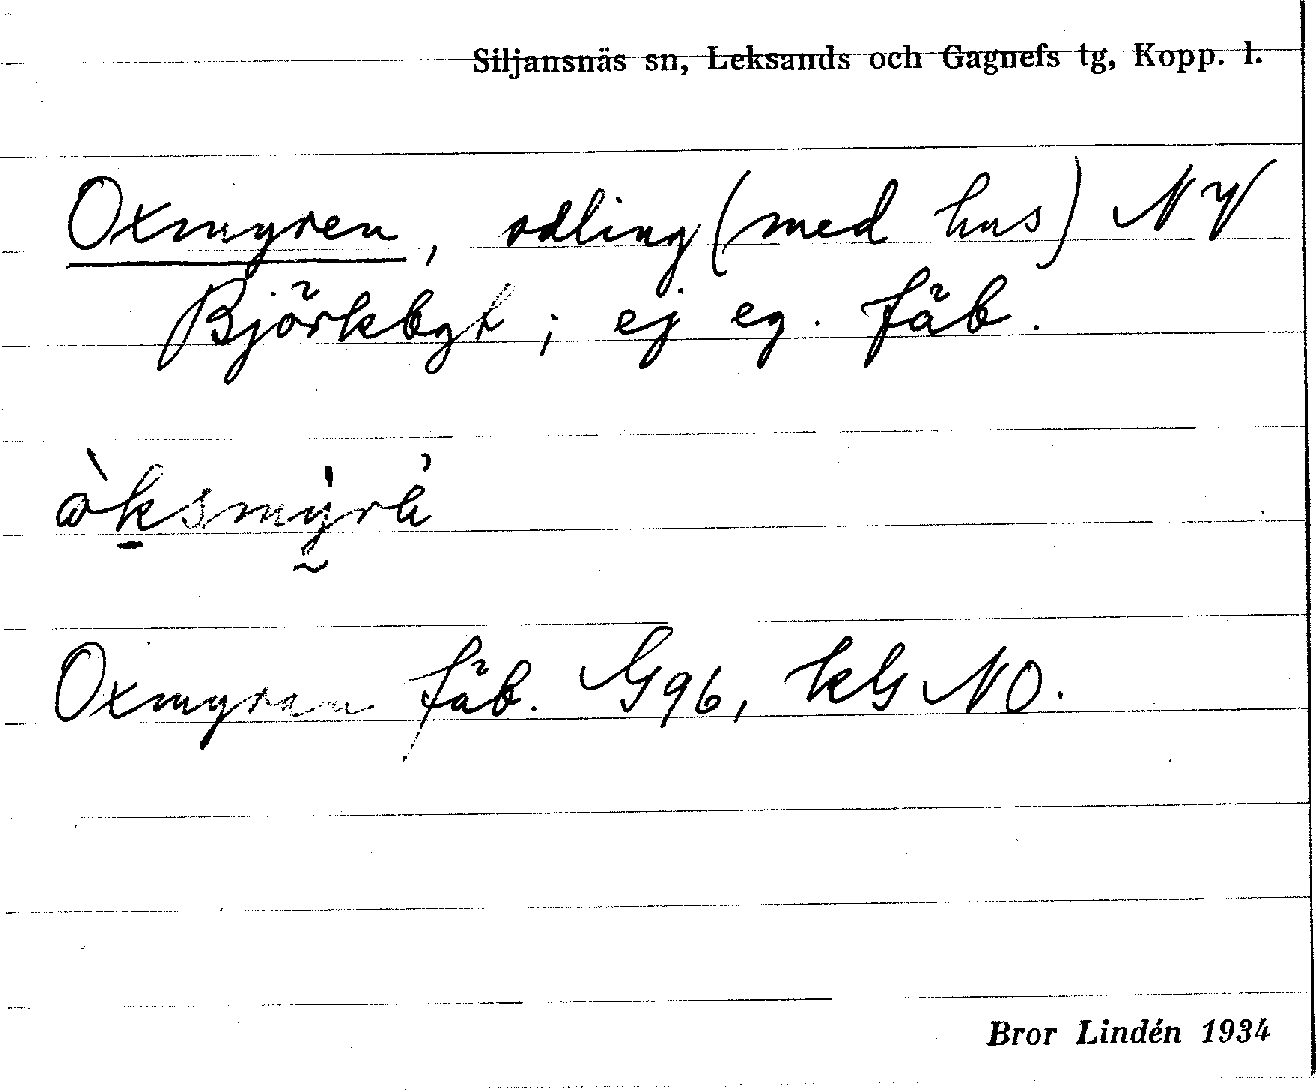 Siljansnäs sn, Leksands och Gagnefs tg, Kopp. l.
Oxmyren, odling (med hus) NV
Björkbgt; ej eg. fäb.
Oxmyren fäb. G96, kG NO.
Bror Lindén 1934